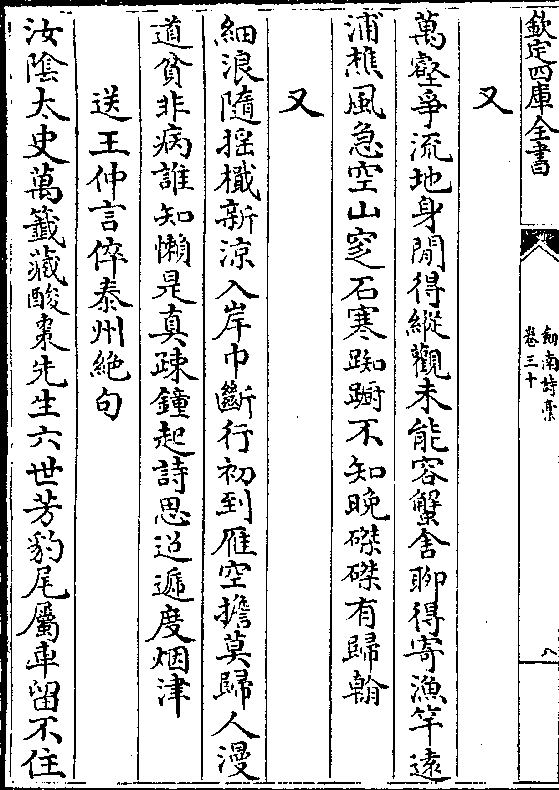 欽定四庫全書
劒南詩藁
卷三十
八
又
萬壑爭流地身閒得縱觀未能容蟹舍聊得寄漁竿遠
浦樵風急空山窆石寒踟躕不知晚磔磔有歸翰
又
細浪隨揺檝新涼入岸巾斷行初到雁空擔莫歸人漫
道貧非病誰知懶是真疎鐘起詩思迢遞度烟津
送王仲言倅泰州絶句
汝隂太史萬籖藏酸棗先生六世芳豹尾屬車留不住